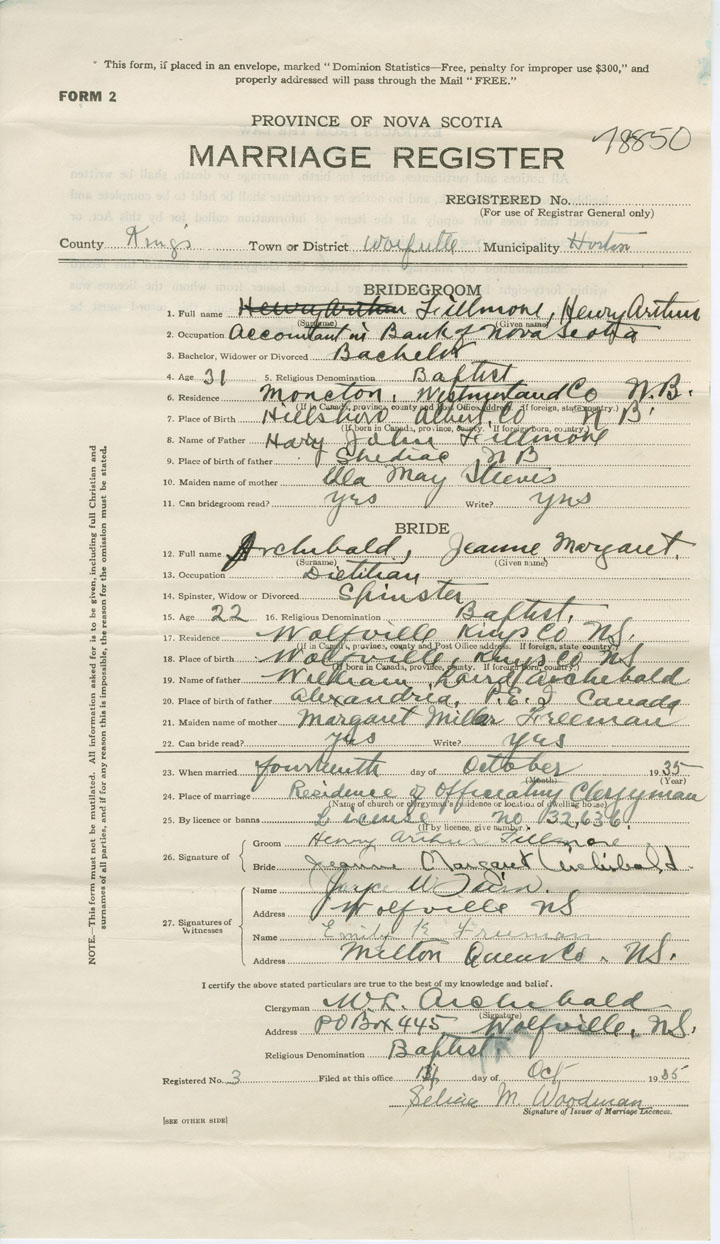 " This form, if placed in an envelope, marked " Dominion Statistics—Free, penalty for improper use $300," and
properly addressed will pass through the Mail " FREE."
FORM 2
PROVINCE OF NOVA SCOTIA
78850
MARRIAGE REGISTER
REGISTERED No.
(For use of Registrar General only)
County Kings Town or District Wolfville Municipality Horton
BRIDEGROOM
1. Full name Henry Arthur Fillmore, Henry Arthur
(Surname) (Given name)
2. Occupation Accountant in Bank of Nova Scotia
3. Bachelor, Widower or Divorced Bachelor
4. Age 31 5. Religious Denomination Baptist
6. Residence Moncton, Westmorland Co N.B.
(If in Canada, province, county and Post Office address. If foreign, state country.)
7. Place of Birth Hillsboro Albert Co N B.
(If born in Canada, province, county. If foreign born, country.)
8. Name of Father Hary John Fillmore
9. Place of birth of father Shediac N B
10. Maiden name of mother Ella May Steeves
11. Can bridegroom read? yes Write? yes
BRIDE
12. Full name Archibald, Jeanne Margaret.
(Surname) (Given name)
13. Occupation Dietitian
14. Spinster, Widow or Divorced Spinster
15. Age 22 16. Religious Denomination Baptist.
17. Residence Wolfville Kings Co NS.
(If in Canada, province, county and Post Office address. If foreign, state country)
18. Place of birth Wolfville, Kings Co NS
(If born in Canada, province, county. If foreign born, country)
19. Name of father William Laird Archibald
20. Place of birth of father Alexandria, P.E.I Canada
21. Maiden name of mother Margaret Millar Freeman
22. Can bride read? yes Write? yes
23. When married fourteenth day of October 1935
(Month) (Year)
24. Place of marriage Residence of Officiating Clergyman
(Name of church or clergyman's residence or location of dwelling house)
25. By licence or banns License no 32,636
(If by licence, give number)
26. Signature of
Groom Henry Arthur Fillmore
Bride Jeanne Margaret Archibald.
27. Signatures of Witnesses
Name W.
Address Wolfville NS
Name Emily R. Freeman
Address Milton Queens Co. NS.
I certify the above stated particulars are true to the best of my knowledge and belief.
Clergyman W.L. Archibald
(Signature)
Address P O Box 445 Wolfville, N.S.
Religious Denomination Baptist
Registered No. 3 Filed at this office day of Oct 1935
M. Woodman
Signature of Issuer of Marriage Licences.
[SEE OTHER SIDE]
NOTE.—This form must not be mutilated. All information asked for is to be given, including full Christian and
surnames of all parties, and if for any reason this is impossible, the reason for the omission must be stated.